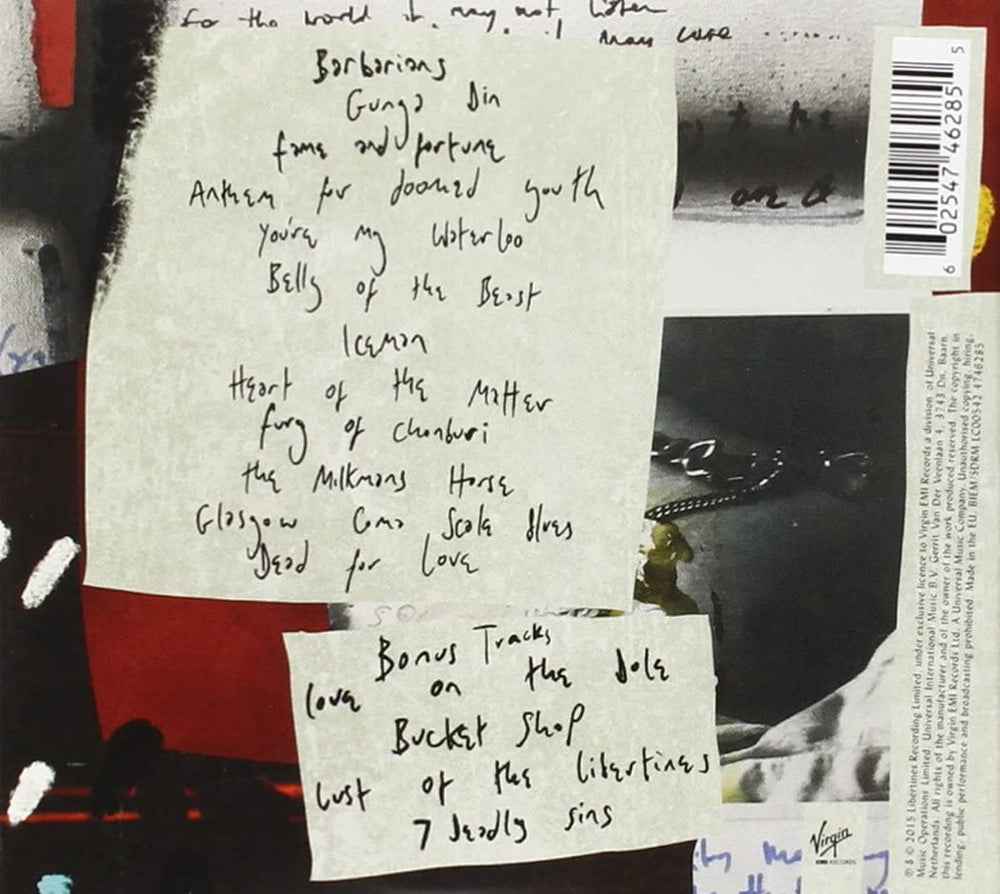 for the world it may not listen
may care ........
Barbarians
Gunga Din
fame and fortune
Anthem for doomed youth
You're my Waterloo
Belly of the Beast
Iceman
Heart of the Matter
fury of chonburi
the Milkmans Horse
Glasgow Coma Scale Blues
Dead for Love
Bonus Tracks
love on the dole
Bucket Shop
lust of the libertines
7 deadly sins
6 02547 46285 5
℗ © 2015 Libertines Recording Limited, under exclusive licence to Virgin EMI Records a division of Universal
Music Operations Limited. Universal International Music B.V. Gerrit Van Der Veenlaan 4, 3743 Dn, Baarn,
Netherlands. All rights of the manufacturer and of the owner of the work produced reserved. The copyright in
this recording is owned by Virgin EMI Records Ltd. A Universal Music Company. Unauthorised copying, hiring,
lending, public performance and broadcasting prohibited. Made in the EU. BIEM/SDRM LC00542 4746285
Virgin
EMI RECORDS